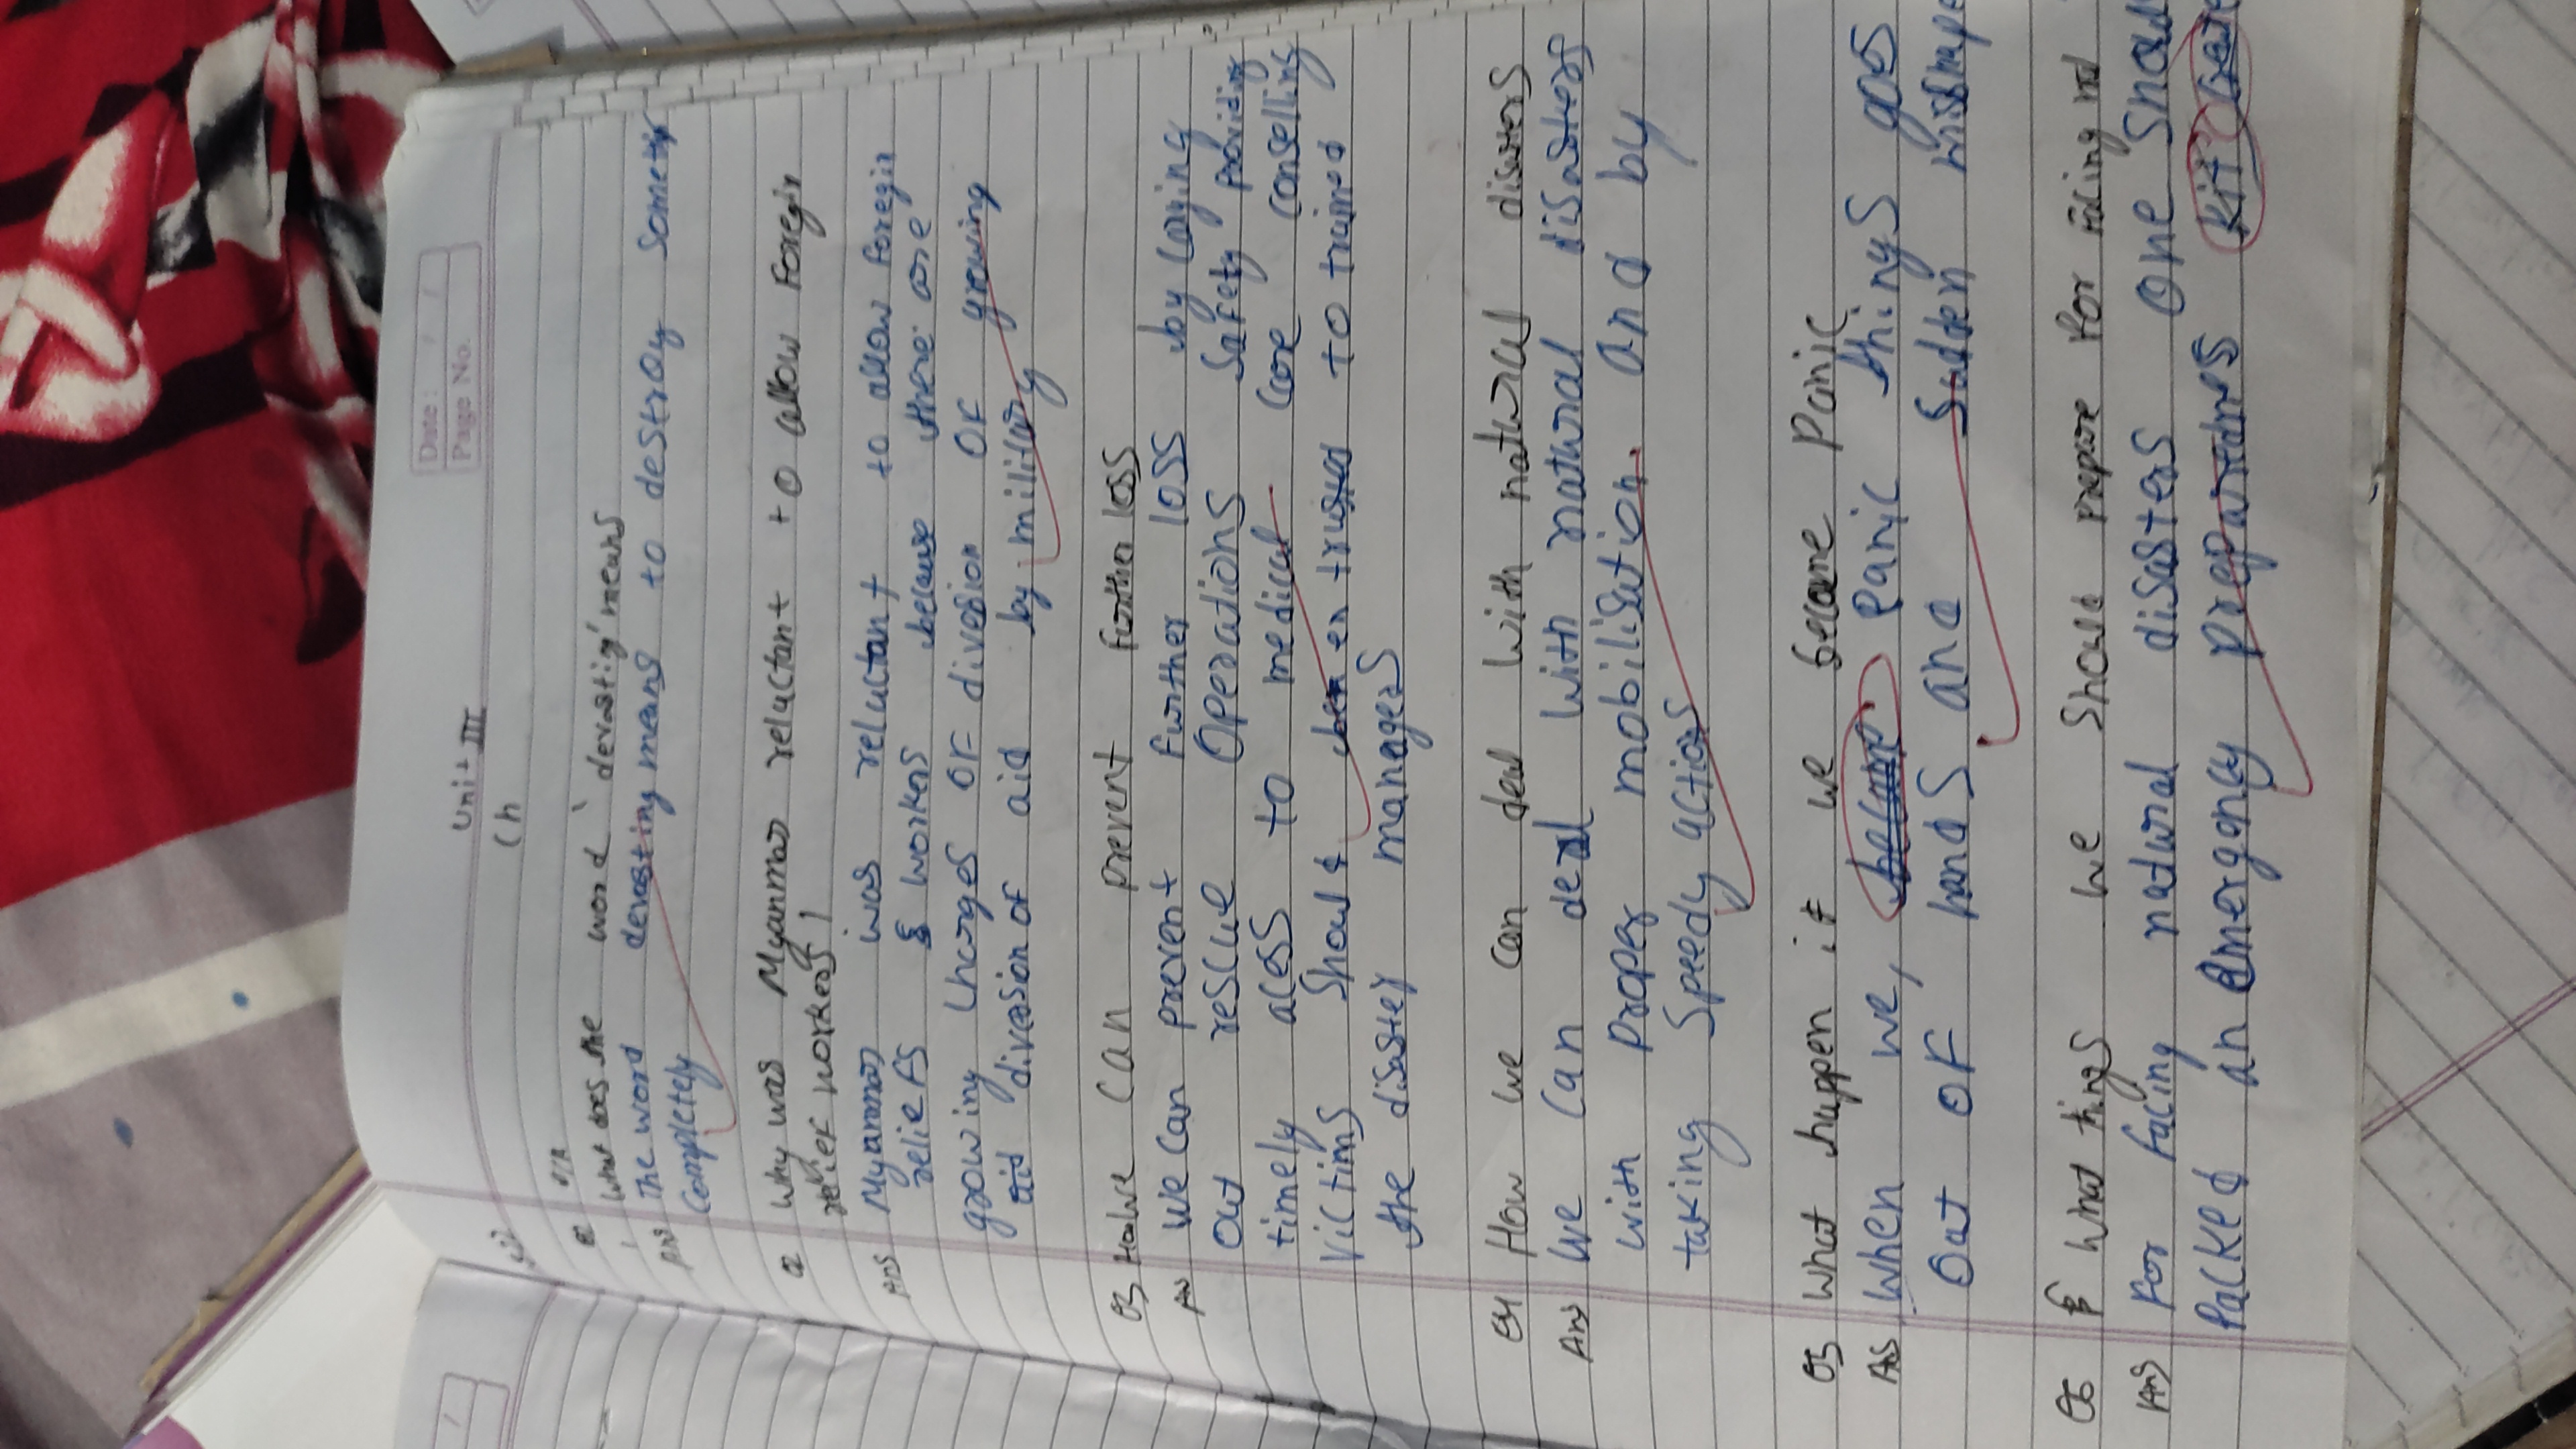 Date :
Page No.
Unit III
Ch
1 What does the word 'devasting' means
Ans The word devasting means to destroy
Completely
Q2 Why was Myanmar reluctant to allow Foregin
relief workers
Ans Myanmar was reluctant to allow foregin
reliefs & workers because there are
growing charges OF diversion OF growing
aid diversion of aid by military
Q3 How we can prevent further loss
An We can prevent further loss by
out rescue Operations Safety providing
timely acess to medical care conselling
victims Should been entrusted to trained
the disaster managers
Q4 How we can deal with natural disasters
Ans We can deal with natural disasters
with proper mobilisation. and by
taking Speedy actions
Q5 What happen if we become Panic
Ans When we, become Panic things goes
Out OF hands and Sudden
Q6 What things we Should prepare For Facing
Ans For facing natural disasters one
Packed an Emergency preparednes kit